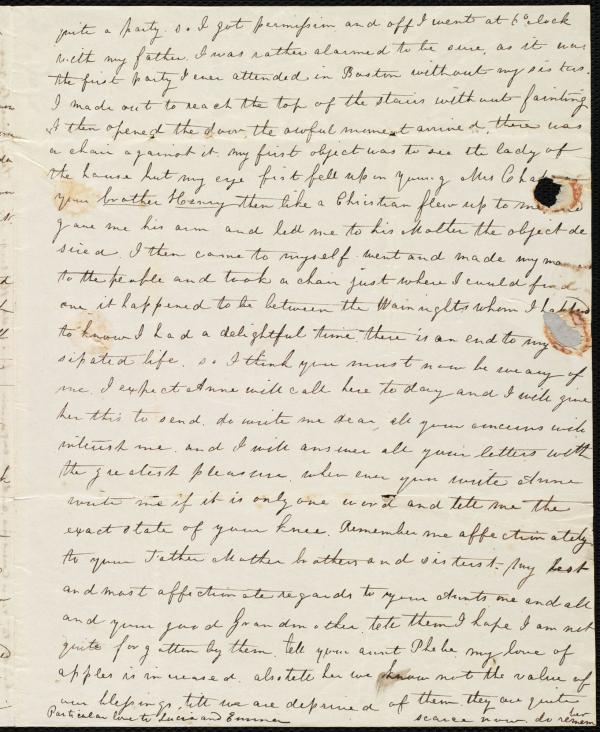 quite a party. so I got permission and off I went at 6 oclock
with my father. I was rather alarmed to be sure, as it was
the first party I ever attended in Boston without my sisters.
I made out to reach the top of the stairs without fainting
I then opened the door, the awful moment arrived, there was
a chair against it. my first object was to see the lady of
the house but my eye first fell upon young Mrs
your brother Henry then like a Christian flew up to me
gave me his arm and led me to his Mother the object de
sired. I then came to myself went and made my
to the people and took a chair just where I could find
one, it happened to be between the Wainrights whom I
to know I had a delightful time there is an end to my
sipated life. so I think you must now be weary of
me. I expect Anne will call here to day and I will give
her this to send. do write me dear, all your concerns will
interest me. and I will answer all your letters with
the greatest pleasure. when ever you write Anne
write me if it is only one word and tell me the
exact state of your knee. Remember me affectionately
to your Father Mother brothers and sisters. my best
and most affectionate regards to your Aunts one and all
and your good Grandmother. tell them I hope I am not
quite forgotten by them. tell your aunt Phebe my love of
apples is increased. also tell her we know not the value of
our blessings, till we are deprived of them. they are quite
scarce now. do remem
ber
Particular love to Lucia and Emma